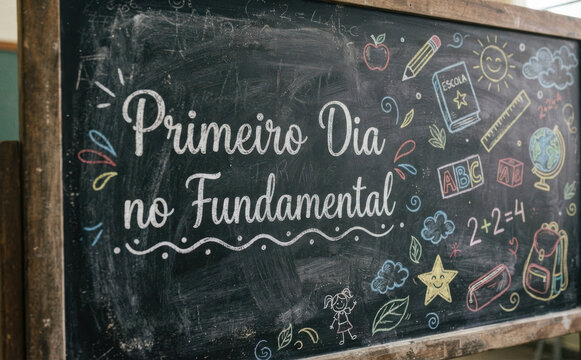 Primeiro Dia
no Fundamental
ESCOLA
ABC
2+2=4